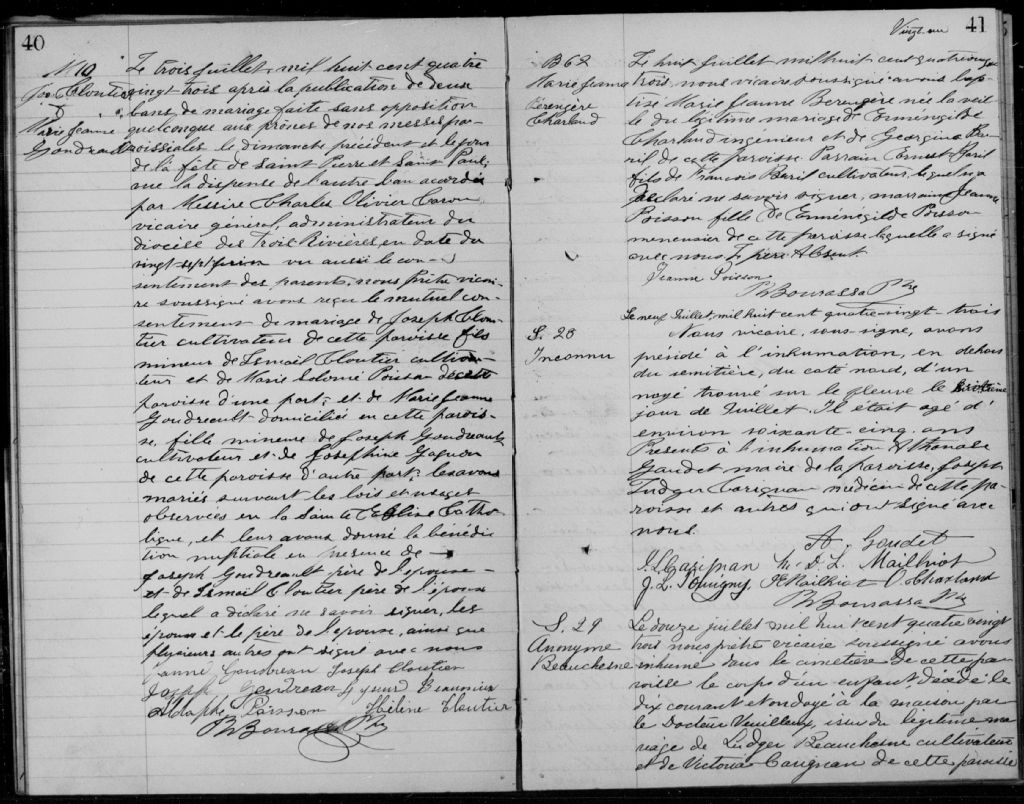 40
M 10
Jos Cloutier
&
Marie Jeanne
Goudreault
Le trois juillet, mil huit cent quatre
vingt trois après la publication de deux
bans de mariage faite sans opposition
quelconque aux prônes de nos messes pa-
roissiales le dimanche précédent et le jour
de la fête de Saint Pierre et Saint Paul;
vue la dispense de l'autre ban accordée
par Messire Charles Olivier Caron,
vicaire général, administrateur du
diocèse des Trois Rivières, en date du
vingt sept juin vu aussi le con-
sentement des parents, nous prêtre vicai-
re soussigné avons reçu le mutuel con-
sentement de mariage de Joseph Clou-
tier cultivateur de cette paroisse fils
mineur de Ismaïl Cloutier cultiva-
teur et de Marie Poisson de cette
paroisse d'une part; et de Marie Jeanne
Goudreault domiciliée en cette parois-
se, fille mineure de Joseph Goudreault
cultivateur et de Josephine Gagnon
de cette paroisse d'autre part; les avons
mariés suivant les lois et usages
observées en la Sainte Eglise Catho-
lique, et leur avons donné la bénédic-
tion nuptiale en présence de
Joseph Goudreault père de l'épouse
et de Ismaïl Cloutier père de l'époux
lequel a déclaré ne savoir signer, les
époux et le père de l'épouse, ainsi que
plusieurs autres ont signé avec nous
Goudreau Joseph Cloutier
Joseph Goudreau
Adolphe Poisson Hélène Cloutier
Ph Bourassa Ptre
Vingt-un
41
B 62
Marie Jeanne
Bérengère
Charland
Le huit juillet mil huit cent quatre vingt
trois, nous vicaire soussigné avons bap-
tisé Marie Jeanne Berengère née la veil-
le du légitime mariage d'Ermenegilde
Charland ingénieur et de Georgina Ba-
ril de cette paroisse Parrain Ernest Baril
fils de Francois Baril cultivateur lequel a
déclaré ne savoir signer, marraine Jeanne
Poisson fille de Erménégilde Poisson
menuisier de cette paroisse laquelle a signé
avec nous Le père Absent.
Jeanne Poisson
Ph Bourassa Ptre
S. 28
Inconnu
Le neuf Juillet, mil huit cent quatre-vingt trois
Nous vicaire, sous-signé, avons
présidé à l'inhumation, en dehors
du semitière, du coté nord, d'un
noyé trouvé sur le fleuve le
jour de Juillet. Il était agé d'
environ soixante-cinq ans
Presents à l'inhumation
Gaudet maire de la paroisse, Joseph
Ludger Carignan médecin de cette pa-
roisse et autres qui ont signé avec
nous.
A. Goudet
J. L. Carignan L. Mailhiot
J. L. Pouvigny Charland
Ph Bourassa Ptre
S. 29
Anonyme
Beauchesne
Le douze juillet mil huit cent quatre vingt
trois nous prêtre vicaire soussigné avons
inhumé dans le cimetière de cette pa-
roisse le corps d'un enfant, décédé le
dix courant et ondoyé à la maison par
le Docteur issu du légitime ma-
riage de Ludger Beauchesne cultivateur
et de Victoria Carignan de cette paroisse